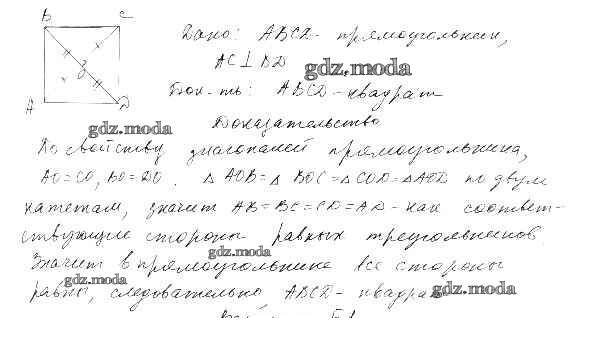 B C
Дано: ABCD - прямоугольник,
AC⊥BD
gdz.moda
A D
Док-ть: ABCD - квадрат
Доказательство
gdz.moda
По свойству диагоналей прямоугольника,
AO=CO, BO=DO. △AOB=△BOC=△COD=△AOD по двум
катетам, значит AB=BC=CD=AD - как соответ-
ствующие стороны равных треугольников.
gdz.moda
Значит в прямоугольнике все стороны
gdz.moda
равны, следовательно, ABCD - квадрат
gdz.moda